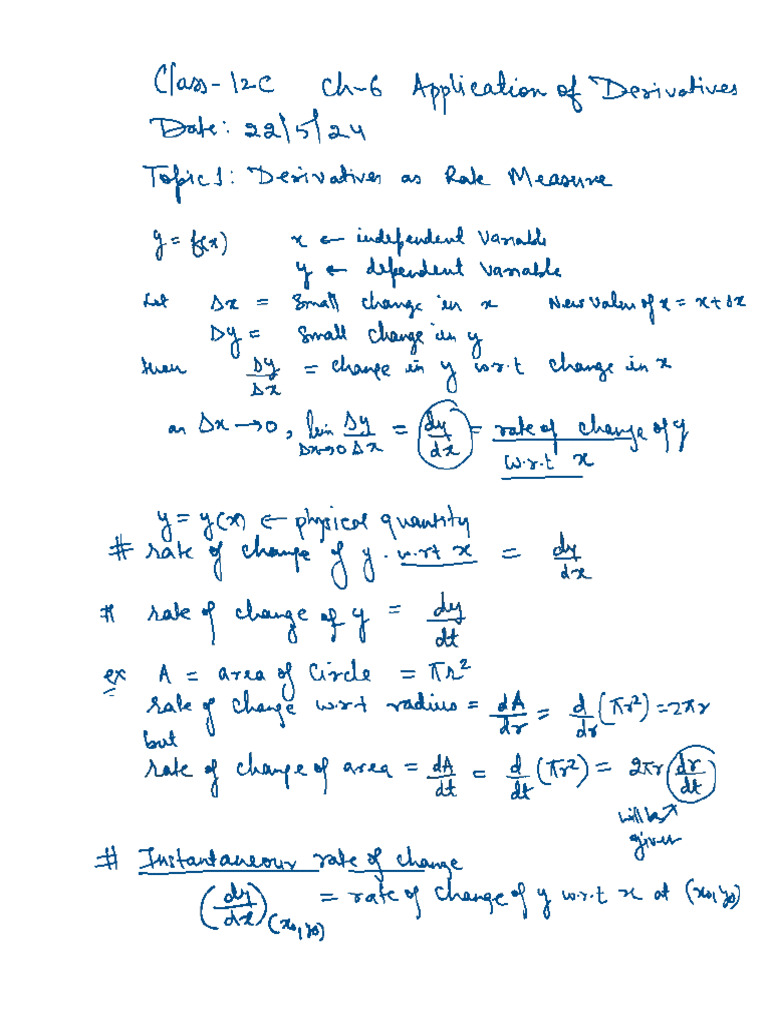 Class-12C Ch-6 Application of Derivatives
Date: 22/5/24
Topic1: Derivatives as Rate Measure
y = f(x) x ← independent variable
y ← dependent variable
Let Δx = small change in x New value of x = x + Δx
Δy = small change in y
then Δy/Δx = change in y w.r.t change in x
as Δx → 0, lim Δx→0 Δy/Δx = dy/dx = rate of change of y
w.r.t x
y = y(x) ← physical quantity
# rate of change of y. w.r.t x = dy/dx
# rate of change of y = dy/dt
ex A = area of circle = πr²
rate of change w.r.t radius = dA/dr = d/dr (πr²) = 2πr
but
rate of change of area = dA/dt = d/dt (πr²) = 2πr dr/dt
will be
given
# Instantaneous rate of change
(dy/dx)(x₀,y₀) = rate of change of y w.r.t x at (x₀,y₀)